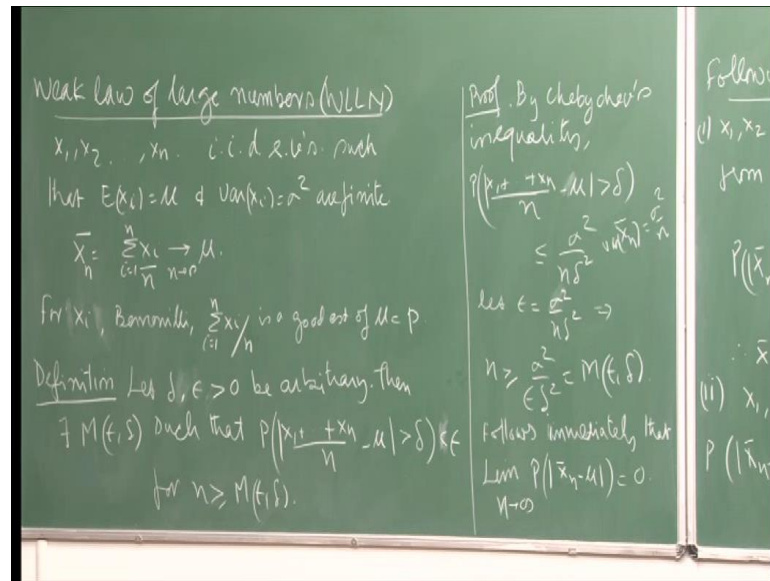 Weak law of large numbers (WLLN)
X₁, X₂ . . , Xn. i.i.d r.v's. such
that E(Xi) = μ & Var(Xi) = σ² are finite
X̄n = Σ_{i=1}^{n} Xi/n → μ. n→∞
For Xi, Bernoulli, Σ_{i=1}^{n} Xi/n is a good est of μ = p.
Definition Let δ, ε > 0 be arbitrary. Then
∃ M(ε, δ) such that P(|X₁+ +Xn/n - μ| > δ) < ε
for n ≥ M(ε, δ).
Proof. By Chebychev's
inequality,
P(|X₁+ +Xn/n - μ| > δ)
≤ σ²/nδ² Var(X̄n) = σ²/n
let ε = σ²/nδ² ⇒
n ≥ σ²/εδ² = M(ε, δ)
Follows immediately that
Lim P(|X̄n - μ|) = 0.
n→∞
(i) X₁, X₂
P(|X̄n
∴ X̄
(ii) X₁,
P(|X̄n